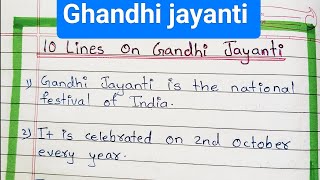 Ghandhi jayanti
10 Lines on Gandhi Jayanti
1) Gandhi Jayanti is the national
festival of India.
2) It is celebrated on 2nd October
every year.